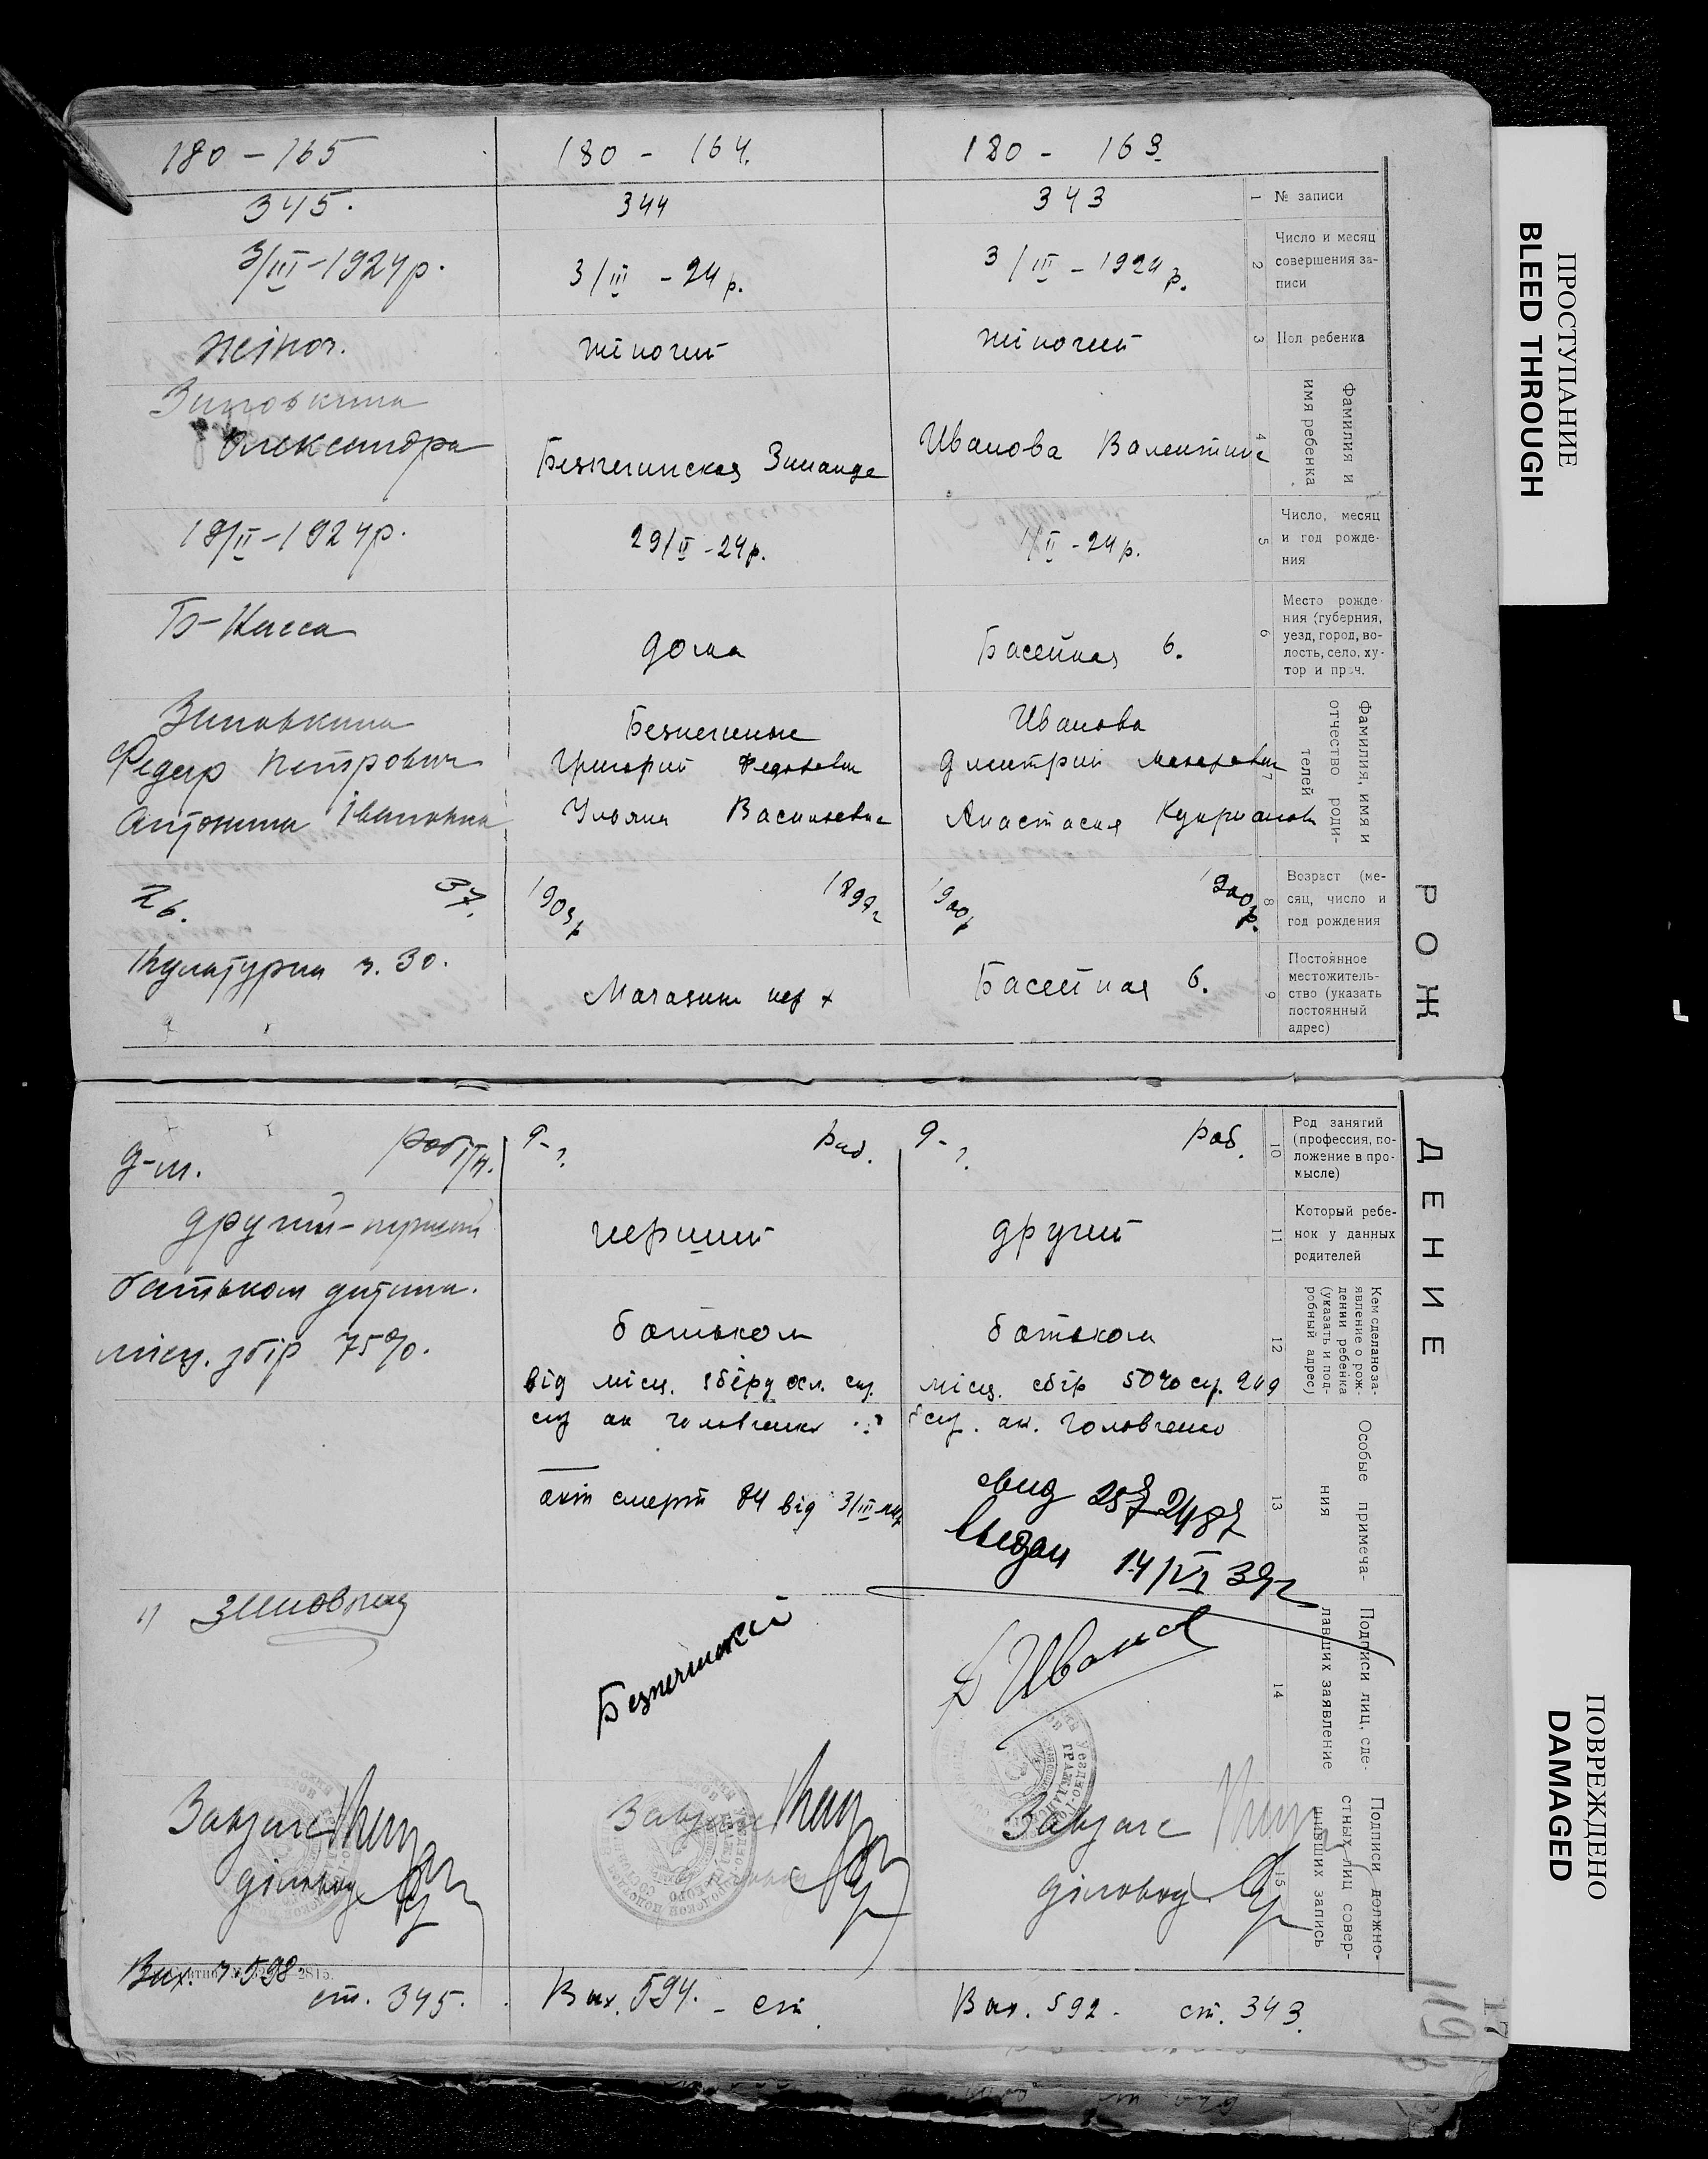 180 - 165
180 - 164.
180 - 163.
345.
344
343
1
№ записи
3/III - 1924 р.
3/III - 24 р.
3/III - 1924 р.
2
Число и месяц
совершения за-
писи
жіноч.
жіночий
жіночий
3
Пол ребенка
Зиновкина
Олександра
Безпечинская Зинаида
Иванова Валентина
4
Фамилия и
имя ребенка
18/II - 1924 р.
29/II - 24 р.
1/II - 24 р.
5
Число, месяц
и год рожде-
ния
дома
Бассейная 6.
6
Место рожде-
ния (губерния,
уезд, город, во-
лость, село, ху-
тор и проч.
Зиновкина
Федір Петрович
Антонина Івановна
Григорий
Уляна Васильевна
Иванова
Дмитрий
Анастасия
7
Фамилия, имя и
отчество роди-
телей
26. 37.
1903 р 1899 г
1900 р 1900 р.
8
Возраст (ме-
сяц, число и
год рождения
ч. 30.
Магазин
Бассейная 6.
9
Постоянное
местожитель-
ство (указать
постоянный
адрес)
РОЖ
ДЕНИЕ
д-г. робітн.
д-г. раб.
д-г. раб.
10
Род занятий
(профессия, по-
ложение в про-
мысле)
другий - перший
перший
другий
11
Который ребе-
нок у данных
родителей
батьком дитини.
місц. збір 75%.
батьком
від місц. збіру
батьком
місц. збір 50%
12
Кем сделано за-
явление о рож-
дении ребенка
(указать и под-
робный адрес)
Головченко
акт смерти 84 від 3/III
ак. Головченко
свид
выдан 14/VI 39 г
13
Особые примеча-
ния
Безпечинский
Д Иванов
14
Подписи лиц, сде-
лавших заявление
Завзагс
діловод
Завзагс
Завзагс
діловод
15
Подписи должно-
стных лиц совер-
шивших запись
Вих. ч. 598
ст. 345.
Вих. 594. - ст.
Вих. 592. ст. 343.
119
17
ПРОСТУПАНИЕ
BLEED THROUGH
ПОВРЕЖДЕНО
DAMAGED